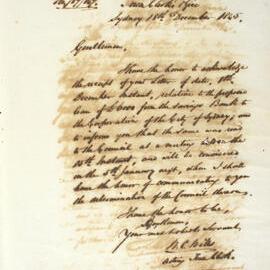 Town Clerk's Office
Sydney 18th December 1845.
Gentlemen,
I have the honor to acknowledge
the receipt of your letter of date, 8th
December Instant, relative to the proposi
tion of £6000 from the Savings Bank to
the Corporation of the City of Sydney, and to
inform you that the same was read
to the Council at a meeting
15th Instant, and will be considered
on the 5th January next, when I shall
have the honor of communicating to you
the determination of the Council thereon.
I have the honor to be,
Gentlemen,
Your most obedient Servant,
Acting Town Clerk.